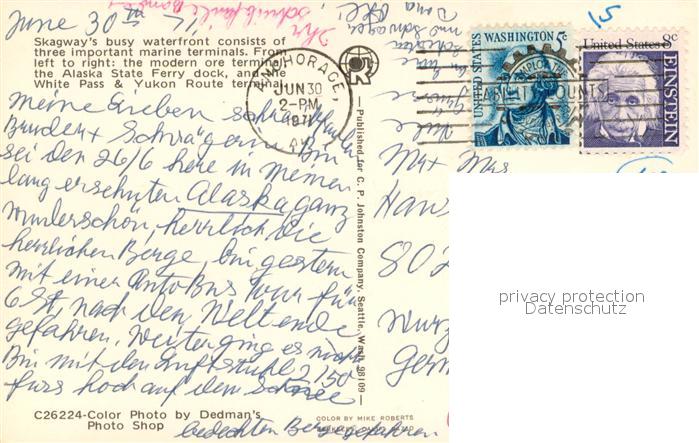 June 30th 71
Skagway's busy waterfront consists of
three important marine terminals. From
left to right: the modern ore terminal,
the Alaska State Ferry dock, and the
White Pass & Yukon Route terminal.
ANCHORAGE,
JUN 30
2-PM
1971
UNITED STATES
WASHINGTON 5c
United States 8c
EINSTEIN
15
Meine lieben
Bruder + Schwägerin Bin
seit den 26/6 here in meinen
lang ersehnten Alaska ganz
wunderschön, herrlich die
herrlichen Berge, bin gestern
mit einer AutoBus Tour für
6 St. nach den Welt ende
gefahren, Weiter ging es nicht
Bin mit den Luftstuhl 2150
fuss hoch auf dem Schnee
bedeckten Berge gefahren
—Published for C. P. Johnston Company, Seattle, Wash. 98109—
Mr + Mrs
Hans
802
Wurz
Germ
privacy protection
Datenschutz
C26224-Color Photo by Dedman's
Photo Shop
COLOR BY MIKE ROBERTS